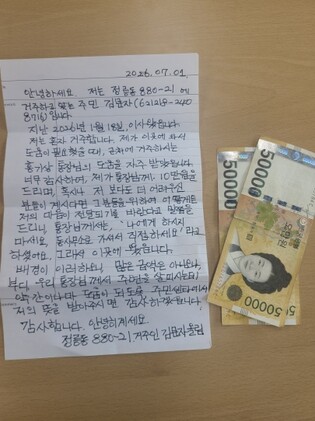 2026.07.01
안녕하세요 저는 정릉동 880-21 에
거주하고 있는 주민
입니다
지난 2026년 1월 18일, 이사 왔습니다
저는 혼자 거주합니다. 제가 이곳에 와서
도움이 필요했을 때, 근처에 거주하시는
통장님의 도움을 자주 받았습니다.
너무 감사하여, 제가 통장님께 10만원을
드리며, 혹시나 저 보다도 더 어려우신
분들이 계시다면 그분들을 위하여
저의 마음이 전달되기를 바란다고 말씀을
드리니, 통장님께서는, "나에게 하시지
마세요, 동사무소 가셔서 직접 하세요" 라고
하셨어요. 그래서 이곳에 왔습니다.
배경이 이러하오니 많은 금액은 아니오나,
부디, 우리 통장님께서 주변을 살피시는데
약간이나마 도움이 되도록 주민센터에서
저의 뜻을 받아주시면 감사하겠습니다.
감사합니다. 안녕히계세요.
정릉동 880-21 거주인 올림
50000
50000
오만원
50000